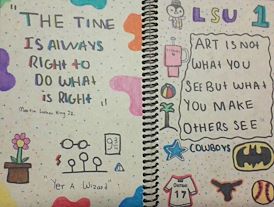 "THE TIME
IS ALWAYS
RIGHT TO
DO WHAT
is RIGHT"
Martin Luther King Jr.
"Yer A Wizard"
LSU 1
ART IS NOT
WHAT YOU
SEE BUT WHAT
YOU MAKE
OTHERS SEE
COWBOYS
17